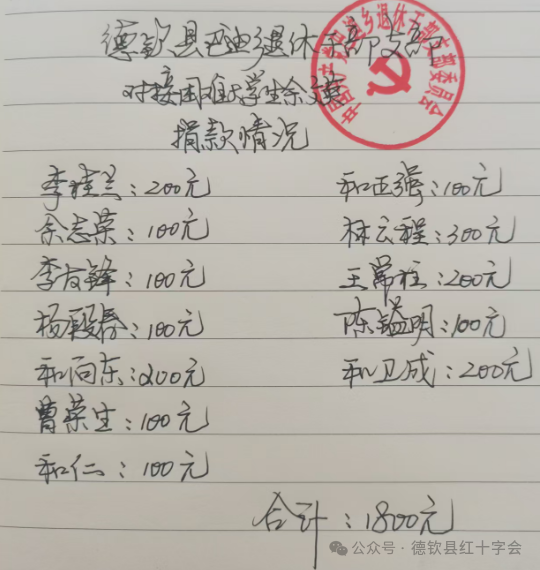 德钦县巴迪退休干部支部
对接困难大学生余
捐款情况
李桂兰：200元 和正强：100元
余志荣：100元 林云程：300元
李友锋：100元 王常柱：200元
杨毅春：100元 陈镒明：100元
和向东：200元 和卫成：200元
曹荣生：100元
和仁：100元
合计：1800元
公众号·德钦县红十字会